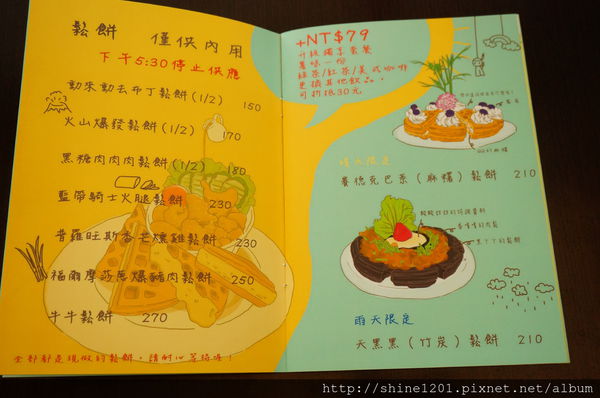 鬆餅 僅供內用
下午5:30停止供應
動來動去布丁鬆餅(1/2) 150
火山爆發鬆餅(1/2) 170
黑糖肉肉肉鬆餅(1/2) 180
藍帶騎士火腿鬆餅 230
普羅旺斯香芒燻雞鬆餅 230
福爾摩莎馬爆豬肉鬆餅 250
牛牛鬆餅 270
全部都是現做的鬆餅，請耐心等待喔！
+NT$79
升級獨享套餐
薯味一份
綠茶/紅茶/美式咖啡
更換其他飲品，
可折抵30元
晴天限定
賽德克巴系（麻糬）鬆餅 210
雨天限定
天黑黑（竹炭）鬆餅 210
http://shine1201.pixnet.net/album